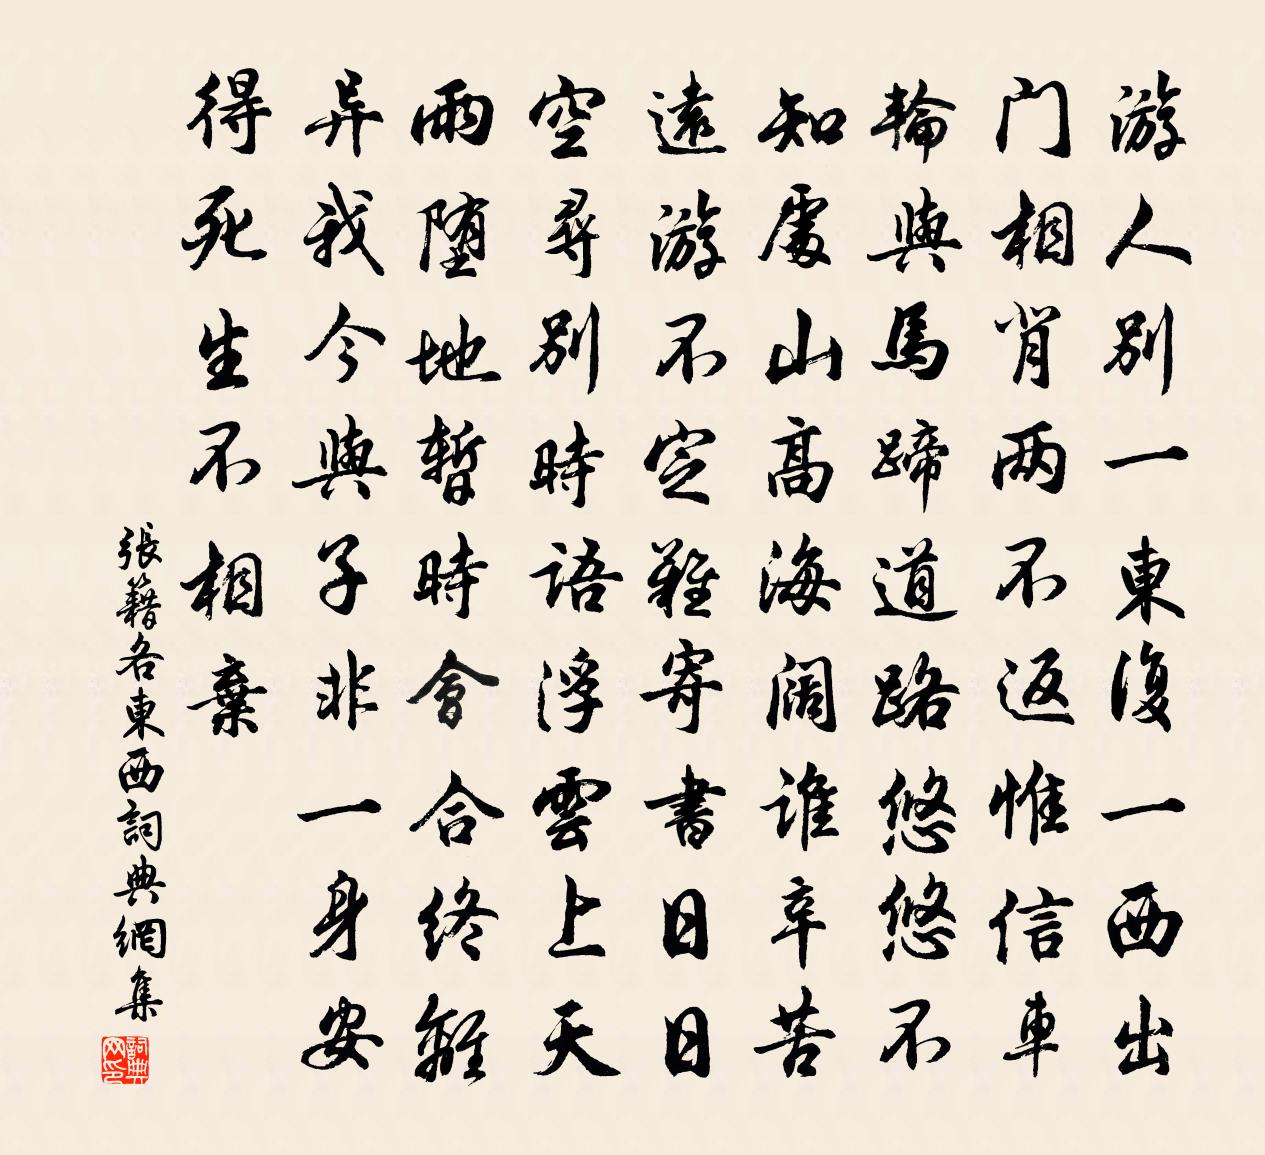 游人别一東復一西出
门相背两不返惟信車
輪與馬蹄道路悠悠不
知處山高海阔谁辛苦
遠游不定難寄書日日
空尋别時語浮雲上天
雨堕地暫時會合终離
异我今與子非一身安
得死生不相棄
張籍各東西詞典網集
詞典网印